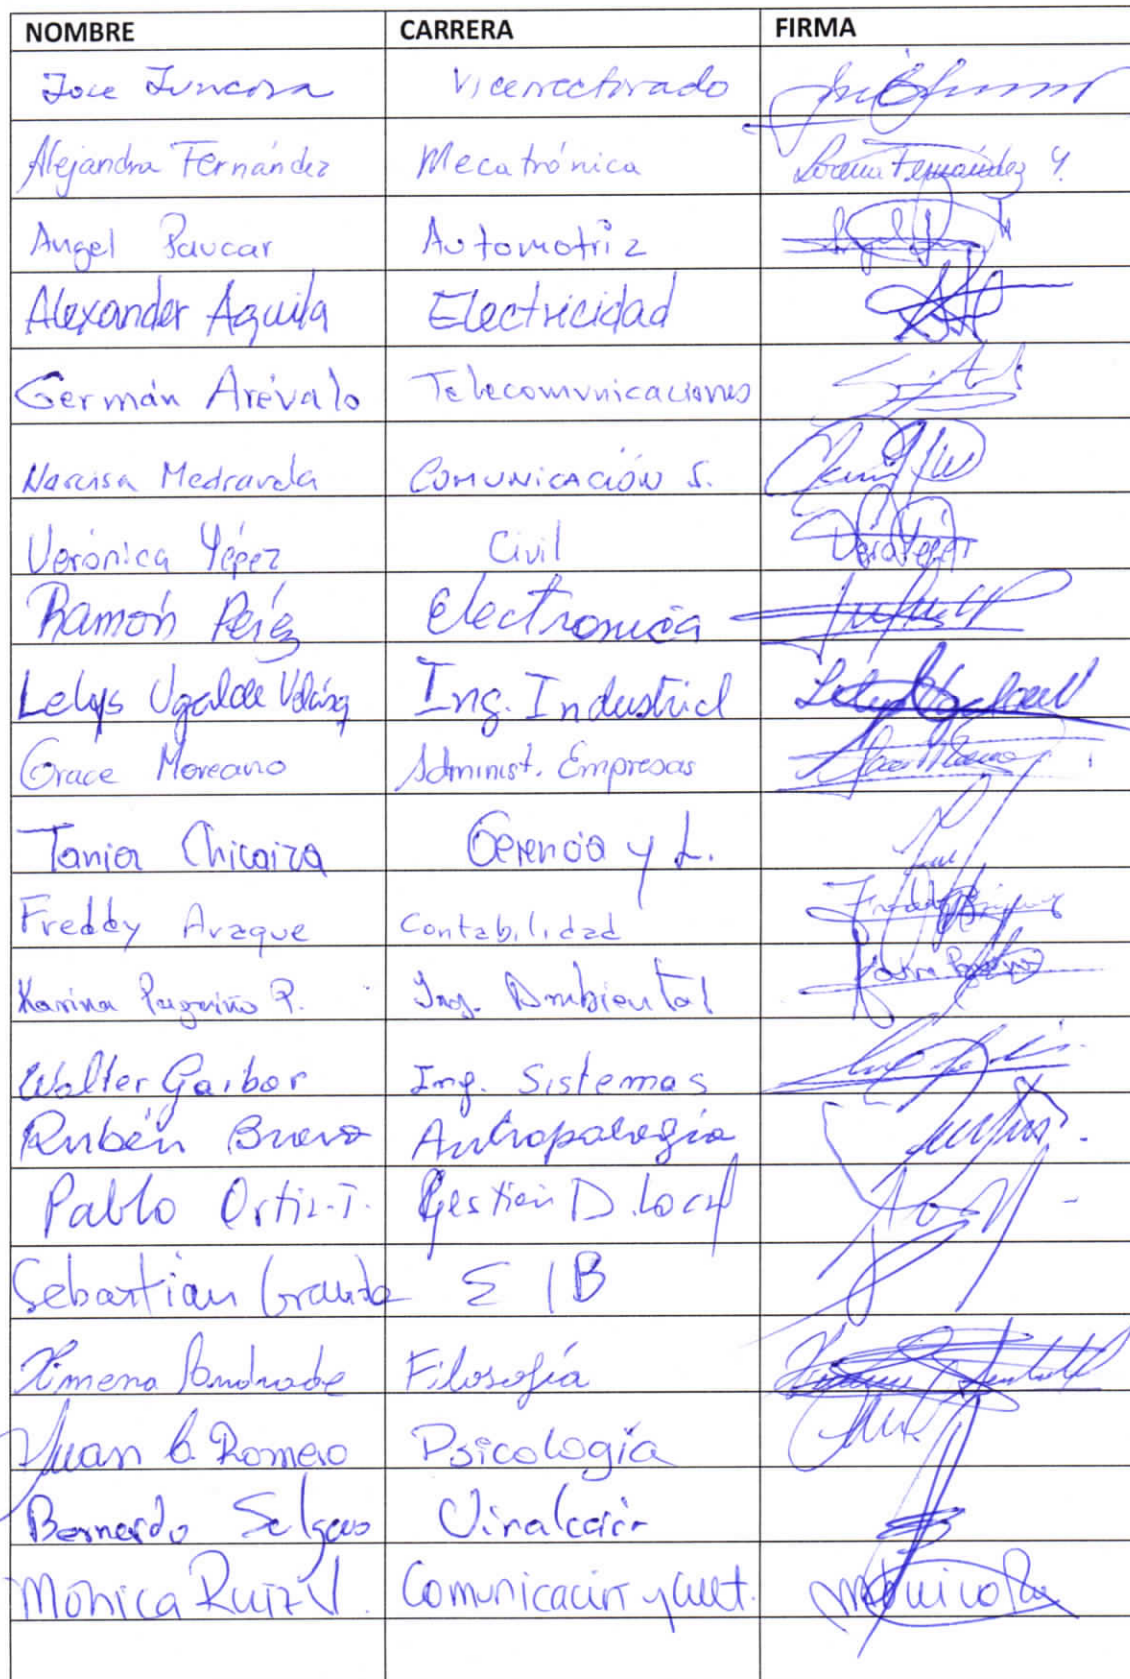 NOMBRE CARRERA FIRMA
Jose Juncosa Vicerrectorado
Alejandra Fernández Mecatrónica Lorena Fernández Y.
Angel Paucar Automotriz
Alexander Aguila Electricidad
Germán Arévalo Telecomunicaciones
Narcisa Medranda Comunicación S.
Verónica Yépez Civil
Ramón Pérez Electronica
Lelys Ugalde Ing. Industrial
Grace Moreano Administ. Empresas
Tania Chicaiza Gerencia y L.
Freddy Araque Contabilidad
Karina P. Ing. Ambiental
Walter Gaibor Ing. Sistemas
Rubén Bravo Antropología
Pablo Ortiz. T. Gestión D. Local
Sebastian Granda E I B
Ximena Andrade Filosofía
Juan C. Romero Psicología
Bernardo
Mónica Ruiz V. Comunicación y Cult.